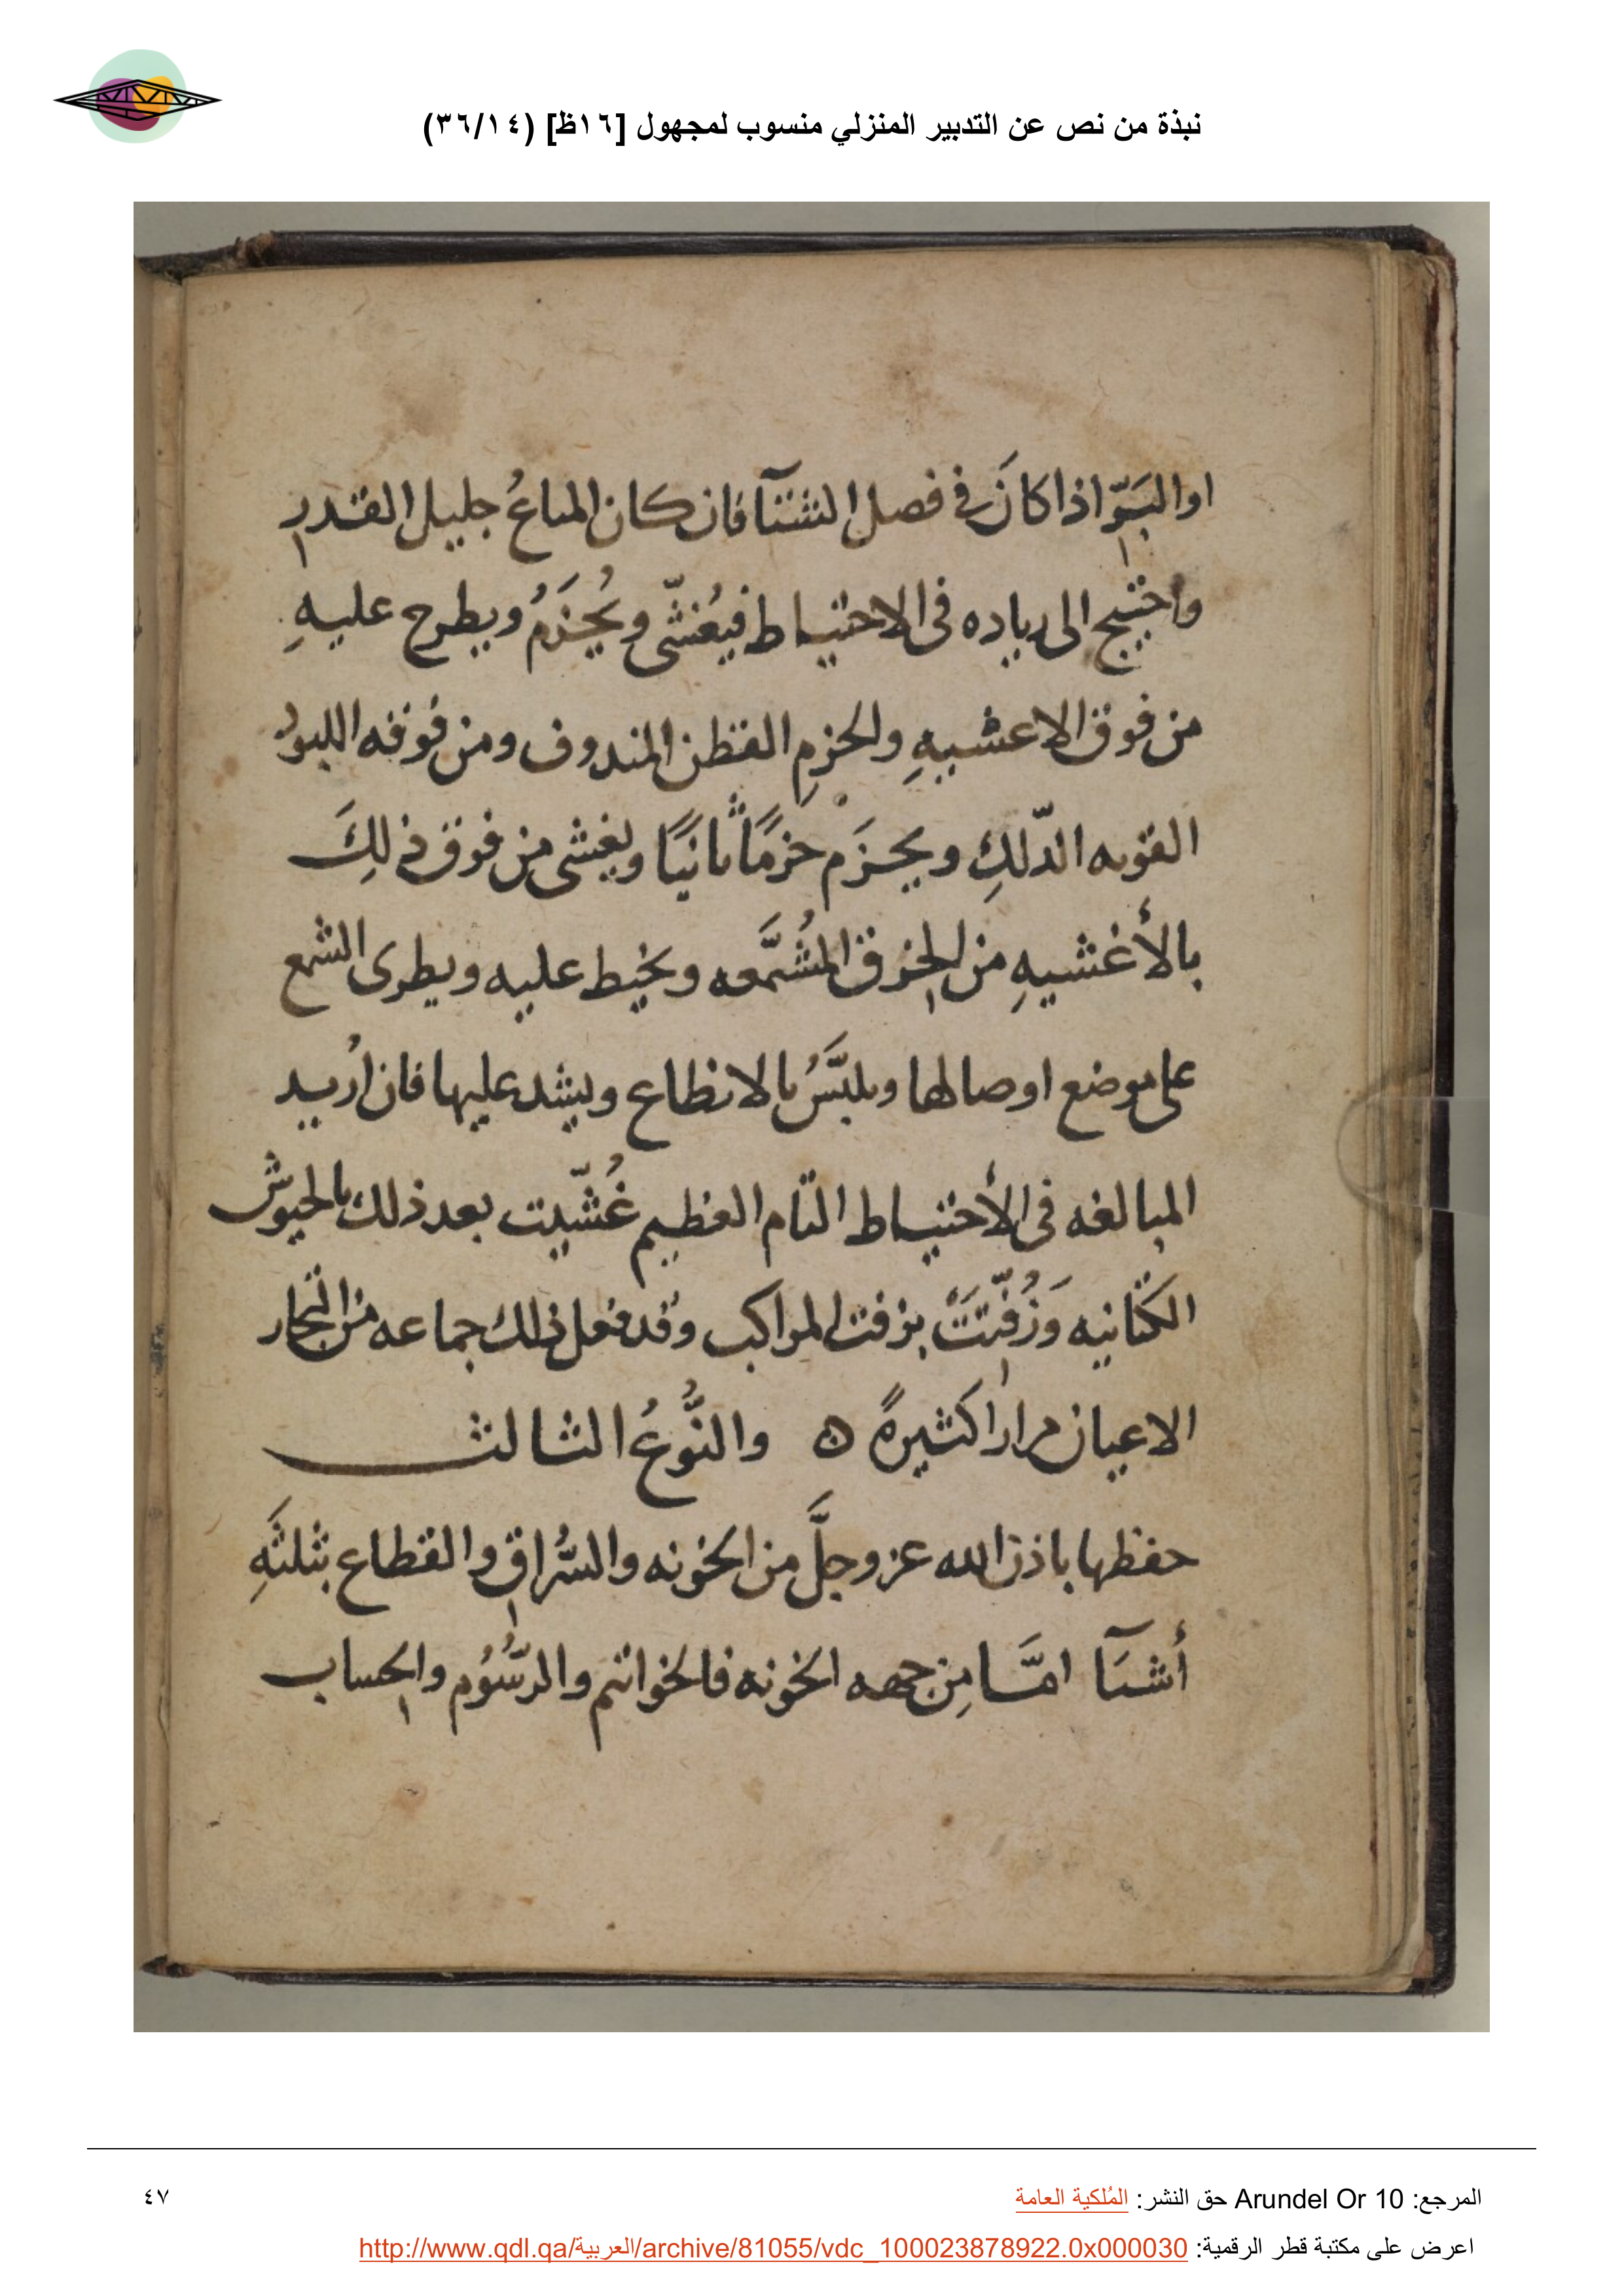 نبذة من نص عن التدبير المنزلي منسوب لمجهول [١٦ظ] (٣٦/١٤)
او البَرّ اذا كانَ في فصل الشتآ فان كان المتاعُ جليل القدر
واحتيج الى رياده فى الاحتياط فيُغشّى ويُحزَمُ ويطرح عليهِ
من فوق الاعشيهِ والحزمِ القطن المندوف ومن فوقه اللبود
القويه الدّلكِ ويحزَم حزمًا ثانيًا ويغشى من فوق ذلِكَ
بالأغشيهِ من الخرق المُشَمَّعه ويخيط عليه ويطرى الشمع
على موضع اوصالها ويلبَّسُ بالانطاع ويشد عليها فان اُريد
المبالغه فى الأحتياط التام العظيم غُشّيت بعد ذلك بالخيوش
الكتانيه وَزُفّتَتَ بزفت المراكب وقد فعل ذلك جماعه من التجار
الاعيان مرارا كثيرةً ه والنَّوعُ الثالث
حفظها باذن الله عز وجلَّ من الخونه والسُّراقِ والقطاع بثلثَهِ
أشيَآ امَّا مِن جهه الخونه فالخواتم والرّسُوُم والحِساب
المرجع: Arundel Or 10 حق النشر: المُلكية العامة
٤٧
اعرض على مكتبة قطر الرقمية: http://www.qdl.qa/العربية/archive/81055/vdc_100023878922.0x000030